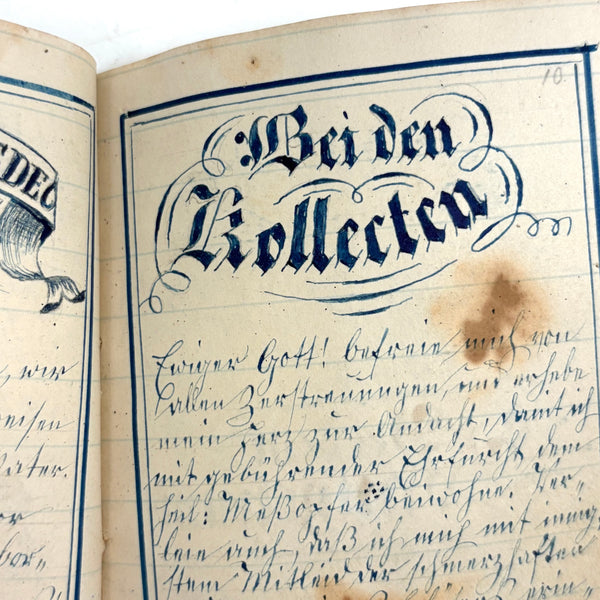 DEO
wir
eisen
Vater.
er
bor=
10
Bei den
Kollecten
Ewiger Gott! befreie mich von
allen Zerstreuungen, und erhebe
mein Herz zur Andacht, damit ich
mit gebührender Ehrfurcht dem
heil: Meßopfer beiwohne. Ver=
leie auch, daß ich mich mit innig=
stem Mitleid der schmerzhaften
erin=